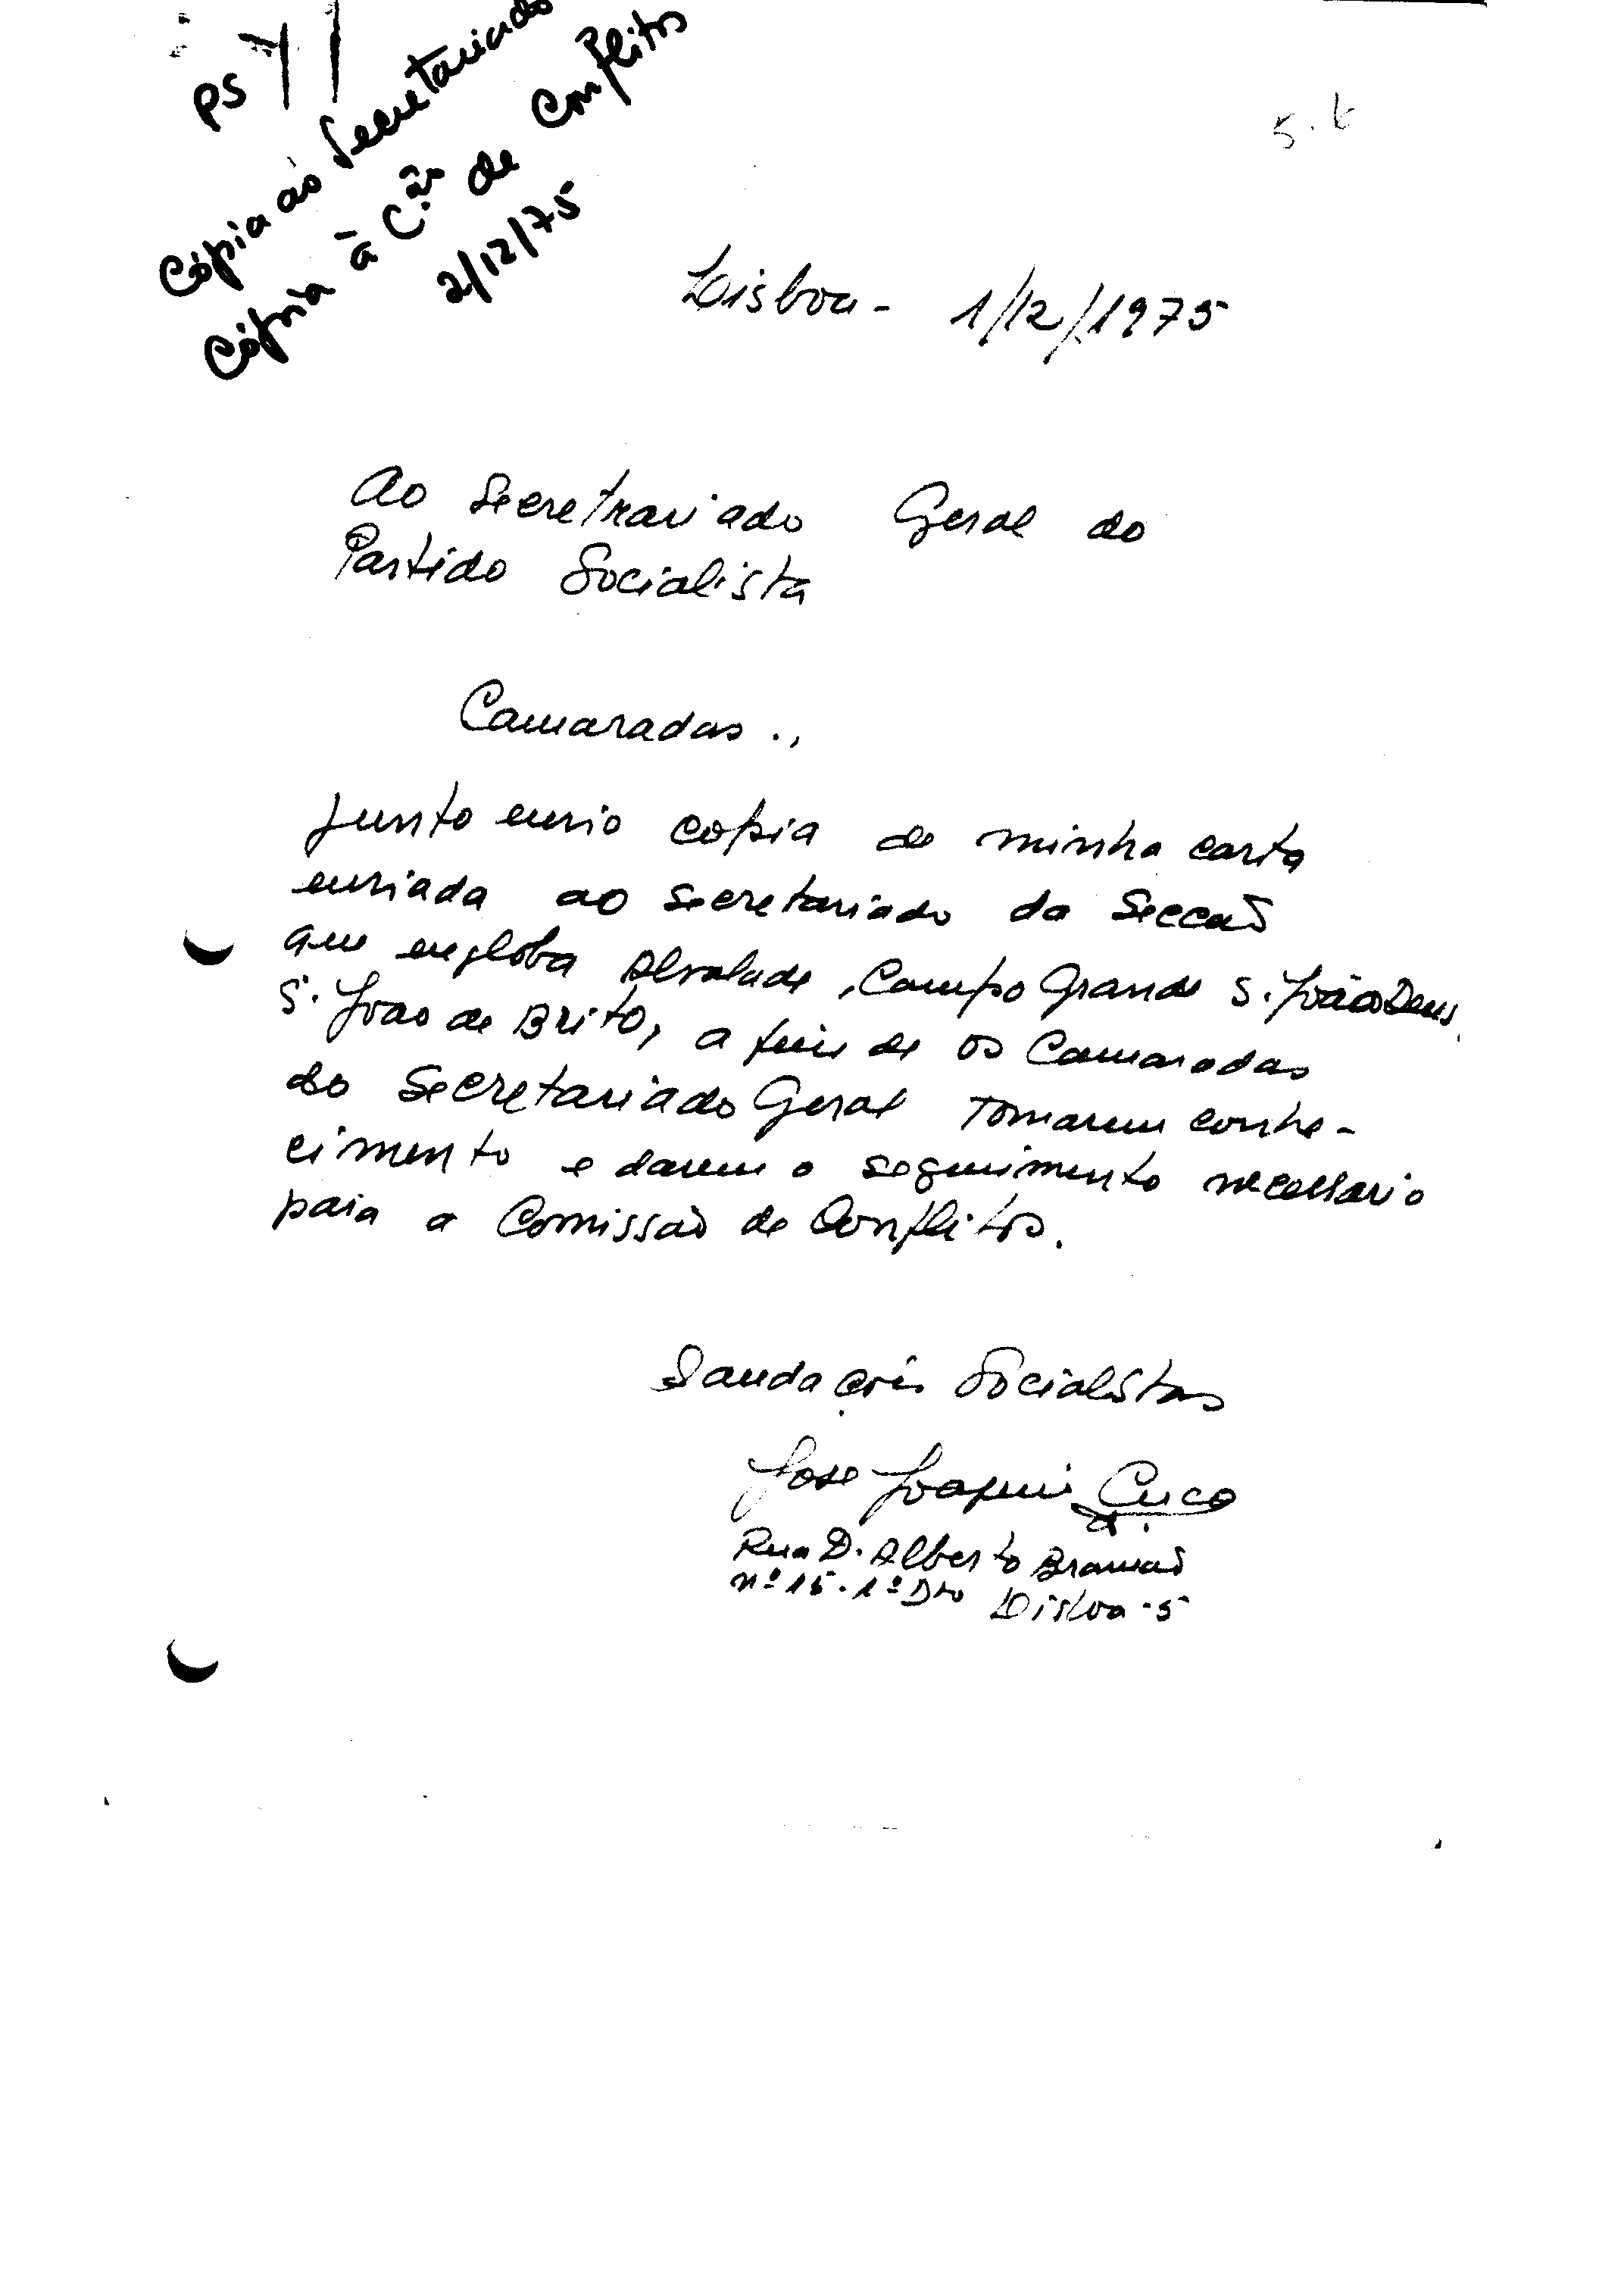 PS
Cópia ao Secretariado
Cópia à C.ão de Conflitos
2/12/75
Lisboa - 1/12/1975
Ao Secretrariado Geral do
Partido Socialista
Camaradas.,
Junto envio copia de minha carta
enviada ao Secretariado da Seccaõ
que engloba Alvalade, Campo Grande S. João Deus
S. Joao de Brito, a fim de os Camaradas
do Secretariado Geral Tomarem conhe-
cimento e darem o seguimento necessario
para a Comissaõ de Conflitos.
Saudações Socialistas
Jose Joaquim Cuco
Rua D. Alberto Bramaõ
nº 15. 1º Dto Lisboa-5